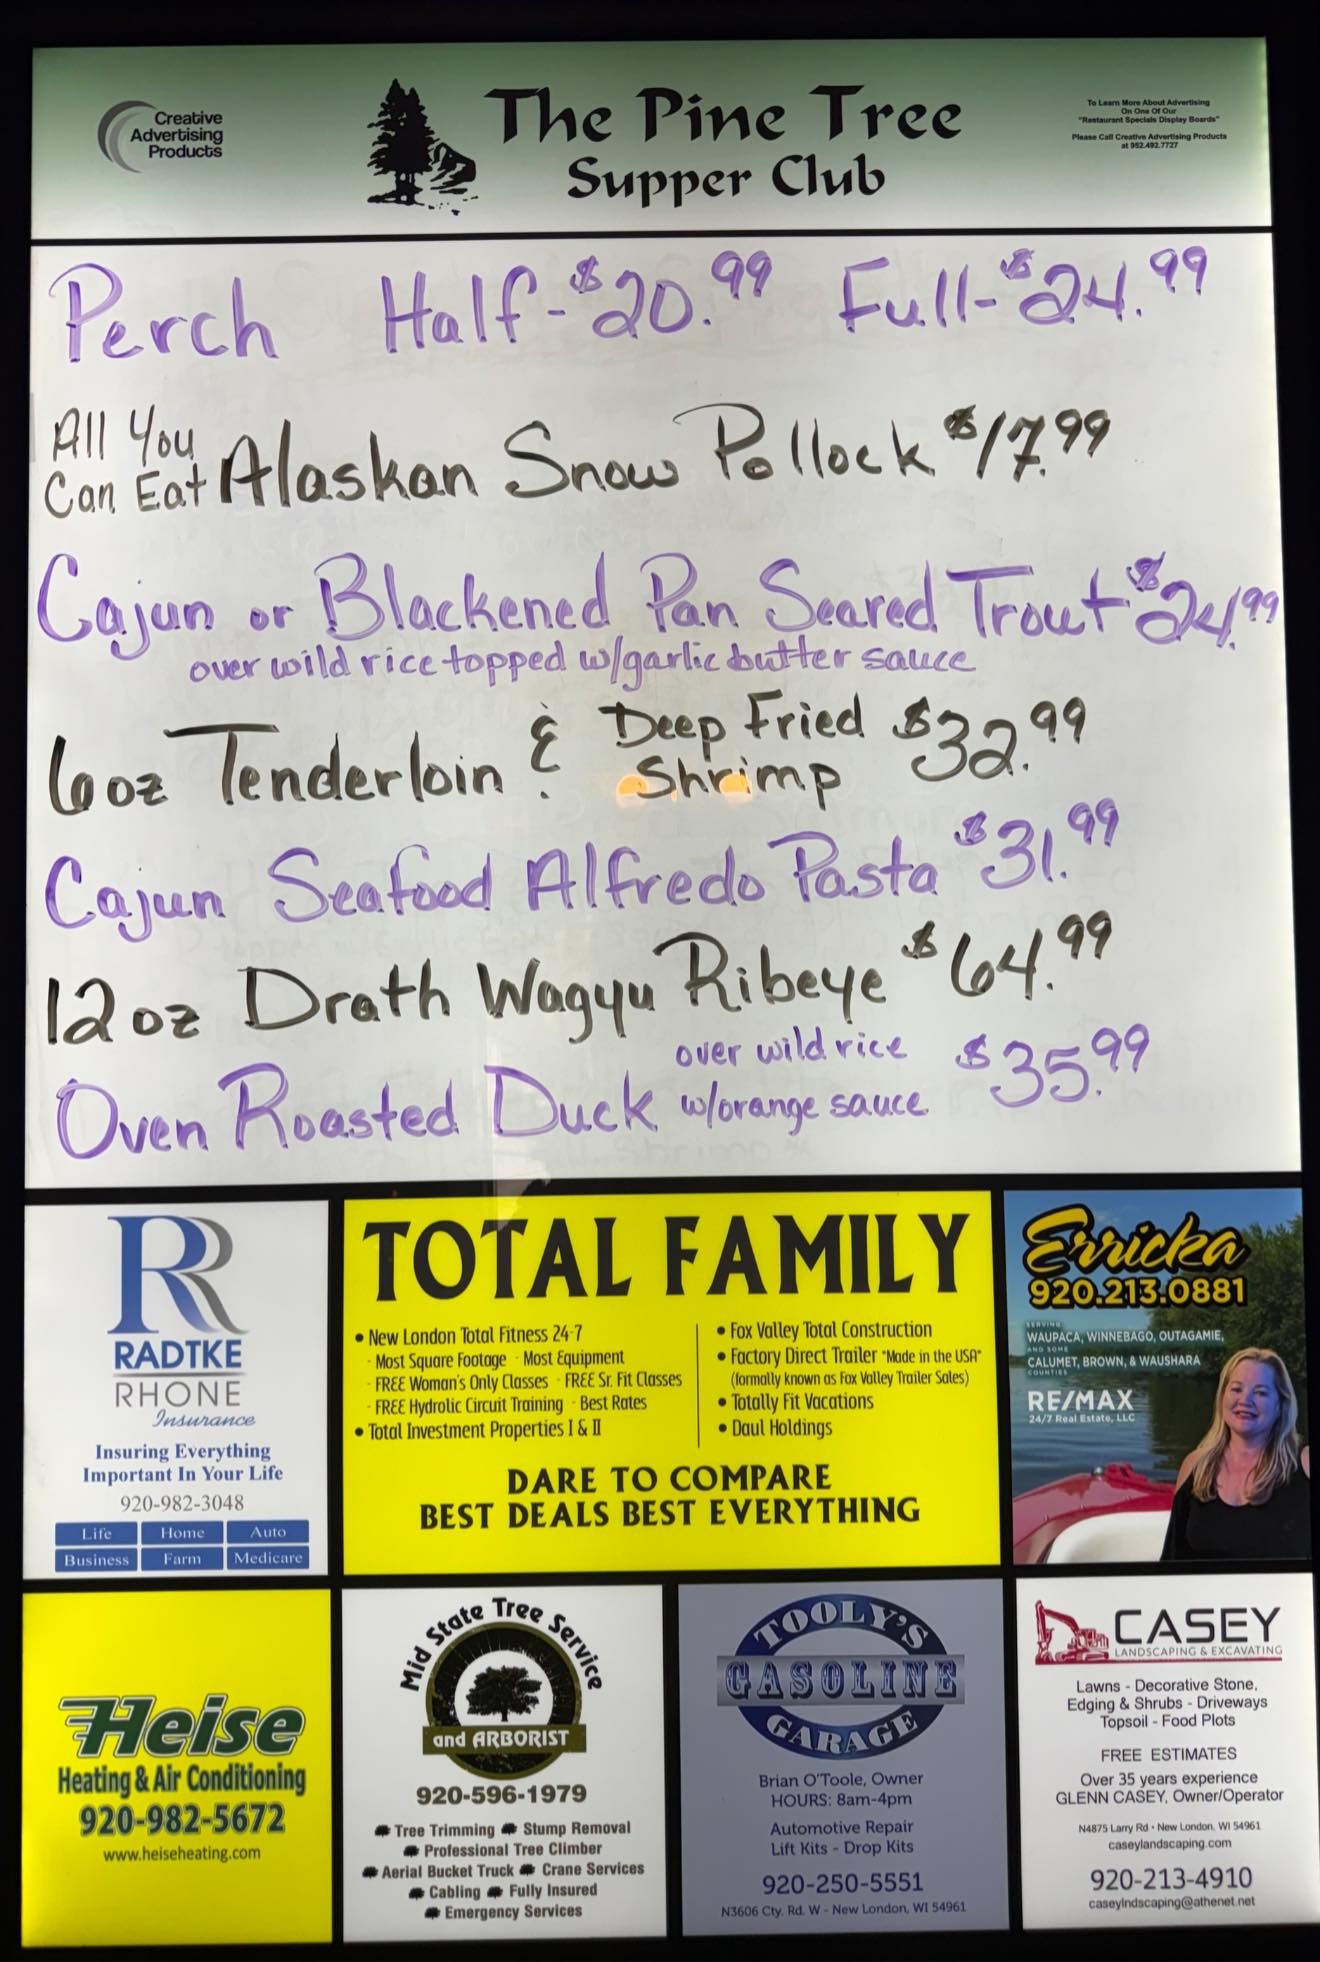 Creative
Advertising
Products
The Pine Tree
Supper Club
To Learn More About Advertising
On One Of Our
"Restaurant Specials Display Boards"
Please Call Creative Advertising Products
at 952.492.7727
Perch Half-$20.99 Full-$24.99
All You
Can Eat Alaskan Snow Pollock $17.99
Cajun or Blackened Pan Seared Trout $24.99
over wild rice topped w/garlic butter sauce
6oz Tenderloin & Deep Fried Shrimp $32.99
Cajun Seafood Alfredo Pasta $31.99
12oz Drath Wagyu Ribeye $64.99
Oven Roasted Duck over wild rice w/orange sauce $35.99
R
RADTKE
RHONE
Insurance
Insuring Everything
Important In Your Life
920-982-3048
Life Home Auto
Business Farm Medicare
TOTAL FAMILY
• New London Total Fitness 24-7
- Most Square Footage - Most Equipment
- FREE Woman's Only Classes - FREE Sr. Fit Classes
- FREE Hydrolic Circuit Training - Best Rates
• Total Investment Properties I & II
• Fox Valley Total Construction
• Factory Direct Trailer "Made in the USA"
(formally known as Fox Valley Trailer Sales)
• Totally Fit Vacations
• Daul Holdings
DARE TO COMPARE
BEST DEALS BEST EVERYTHING
Erricka
920.213.0881
SERVING
WAUPACA, WINNEBAGO, OUTAGAMIE,
AND SOME
CALUMET, BROWN, & WAUSHARA
COUNTIES
RE/MAX
24/7 Real Estate, LLC
Heise
Heating & Air Conditioning
920-982-5672
www.heiseheating.com
Mid State Tree Service
and ARBORIST
920-596-1979
Tree Trimming Stump Removal
Professional Tree Climber
Aerial Bucket Truck Crane Services
Cabling Fully Insured
Emergency Services
TOOLY'S
GASOLINE
GARAGE
Brian O'Toole, Owner
HOURS: 8am-4pm
Automotive Repair
Lift Kits - Drop Kits
920-250-5551
N3606 Cty. Rd. W - New London, WI 54961
CASEY
LANDSCAPING & EXCAVATING
Lawns - Decorative Stone,
Edging & Shrubs - Driveways
Topsoil - Food Plots
FREE ESTIMATES
Over 35 years experience
GLENN CASEY, Owner/Operator
N4875 Larry Rd • New London, WI 54961
caseylandscaping.com
920-213-4910
caseylndscaping@athenet.net